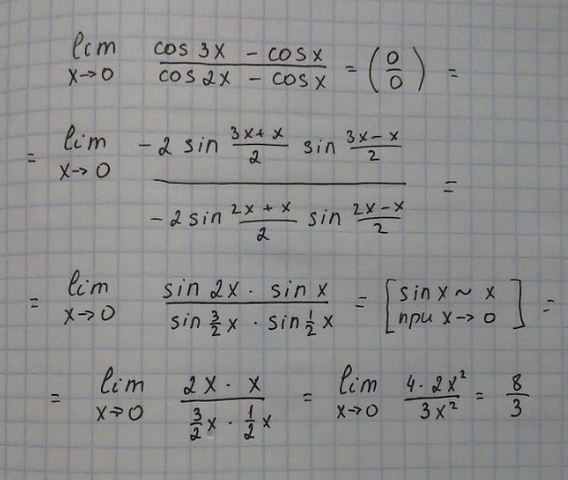 lim x→0 (cos 3x - cos x)/(cos 2x - cos x) = (0/0) =
= lim x→0 (-2 sin (3x+x)/2 sin (3x-x)/2)/(-2 sin (2x+x)/2 sin (2x-x)/2) =
= lim x→0 (sin 2x · sin x)/(sin 3/2 x · sin 1/2 x) = [sin x ~ x при x→0] =
= lim x→0 (2x · x)/(3/2 x · 1/2 x) = lim x→0 (4 · 2x²)/(3x²) = 8/3